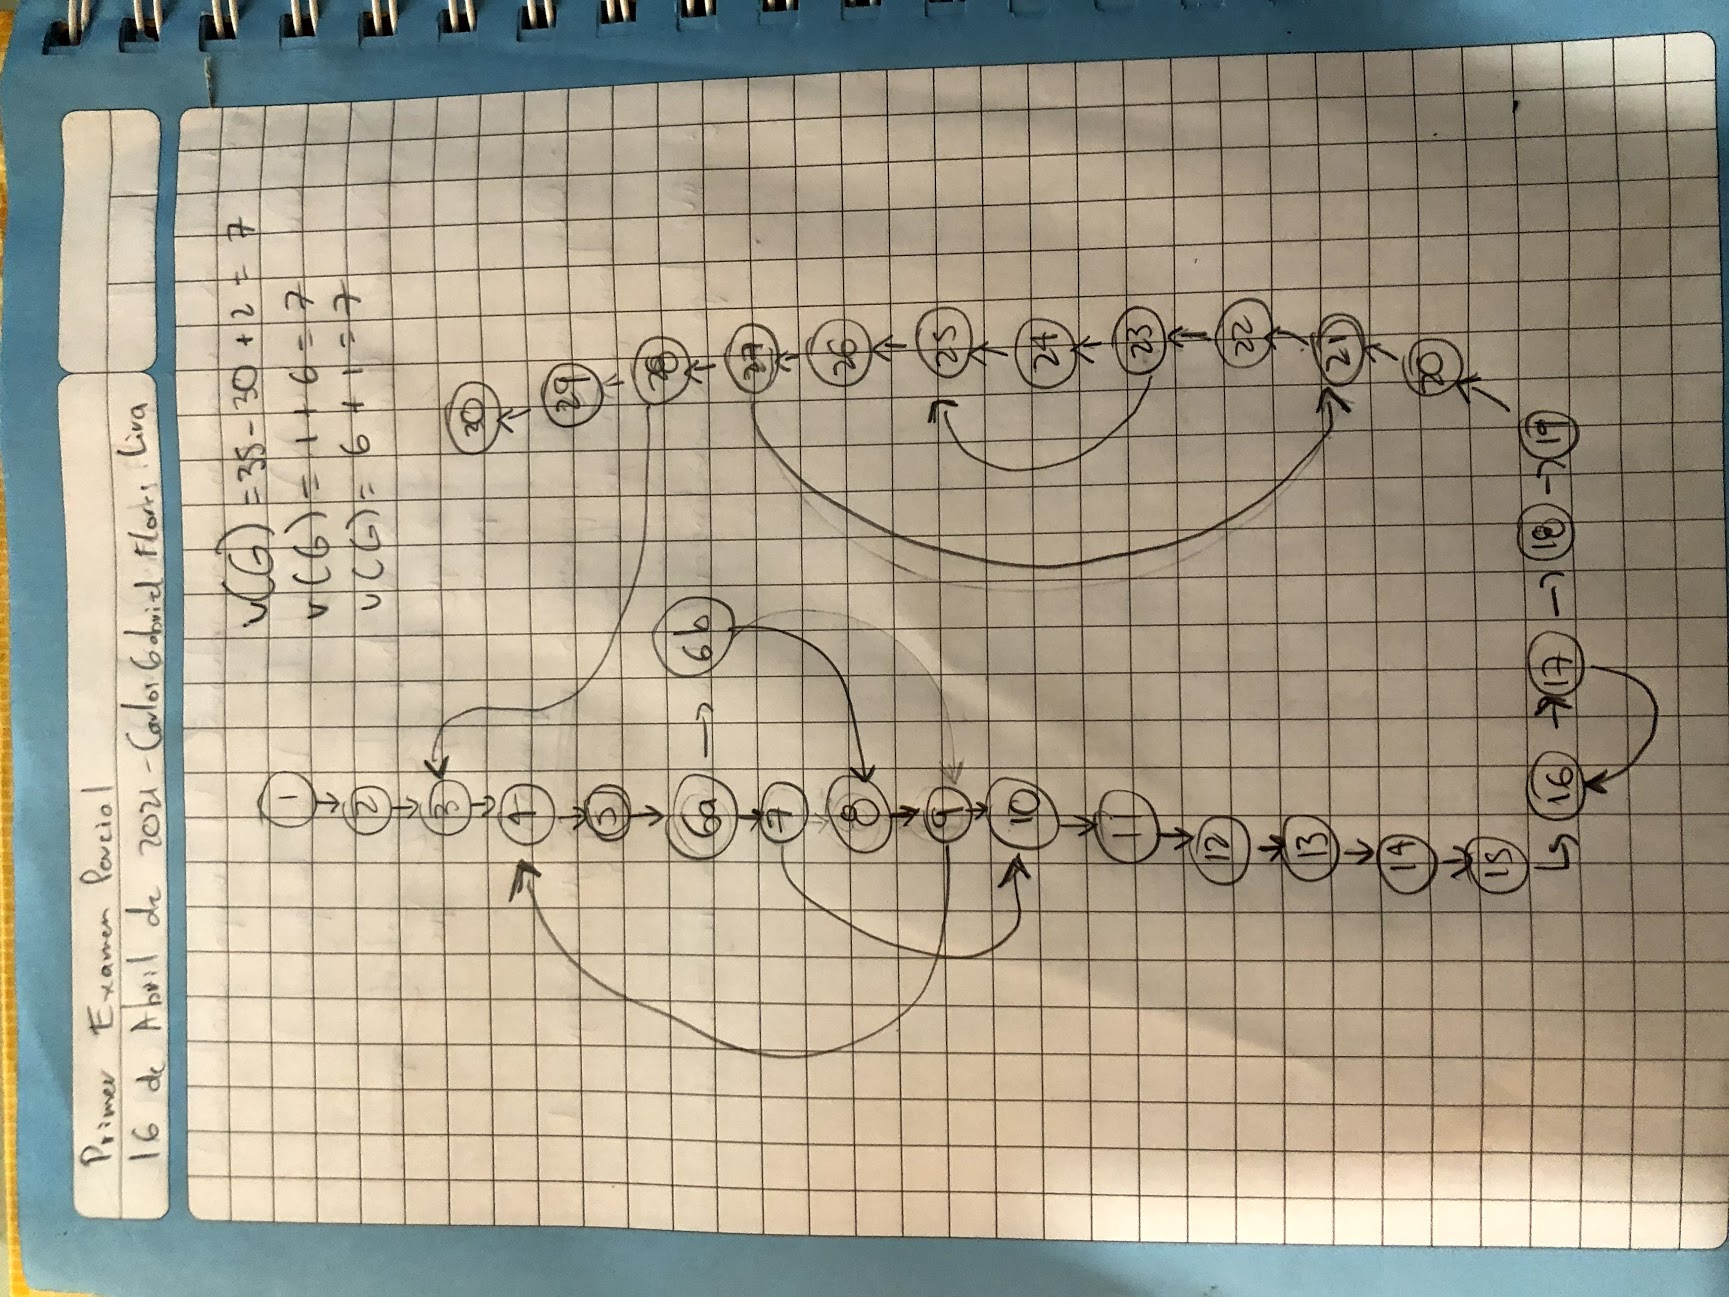 Primer Examen Parcial
16 de Abril de 2021 - Carlos Gabriel Flores Lira
V(G) = 35 - 30 + 2 = 7
V(G) = 1 + 6 = 7
V(G) = 6 + 1 = 7
1
2
3
4
5
6a
6b
7
8
9
10
11
12
13
14
15
16
17
18
19
20
21
22
23
24
25
26
27
28
29
30